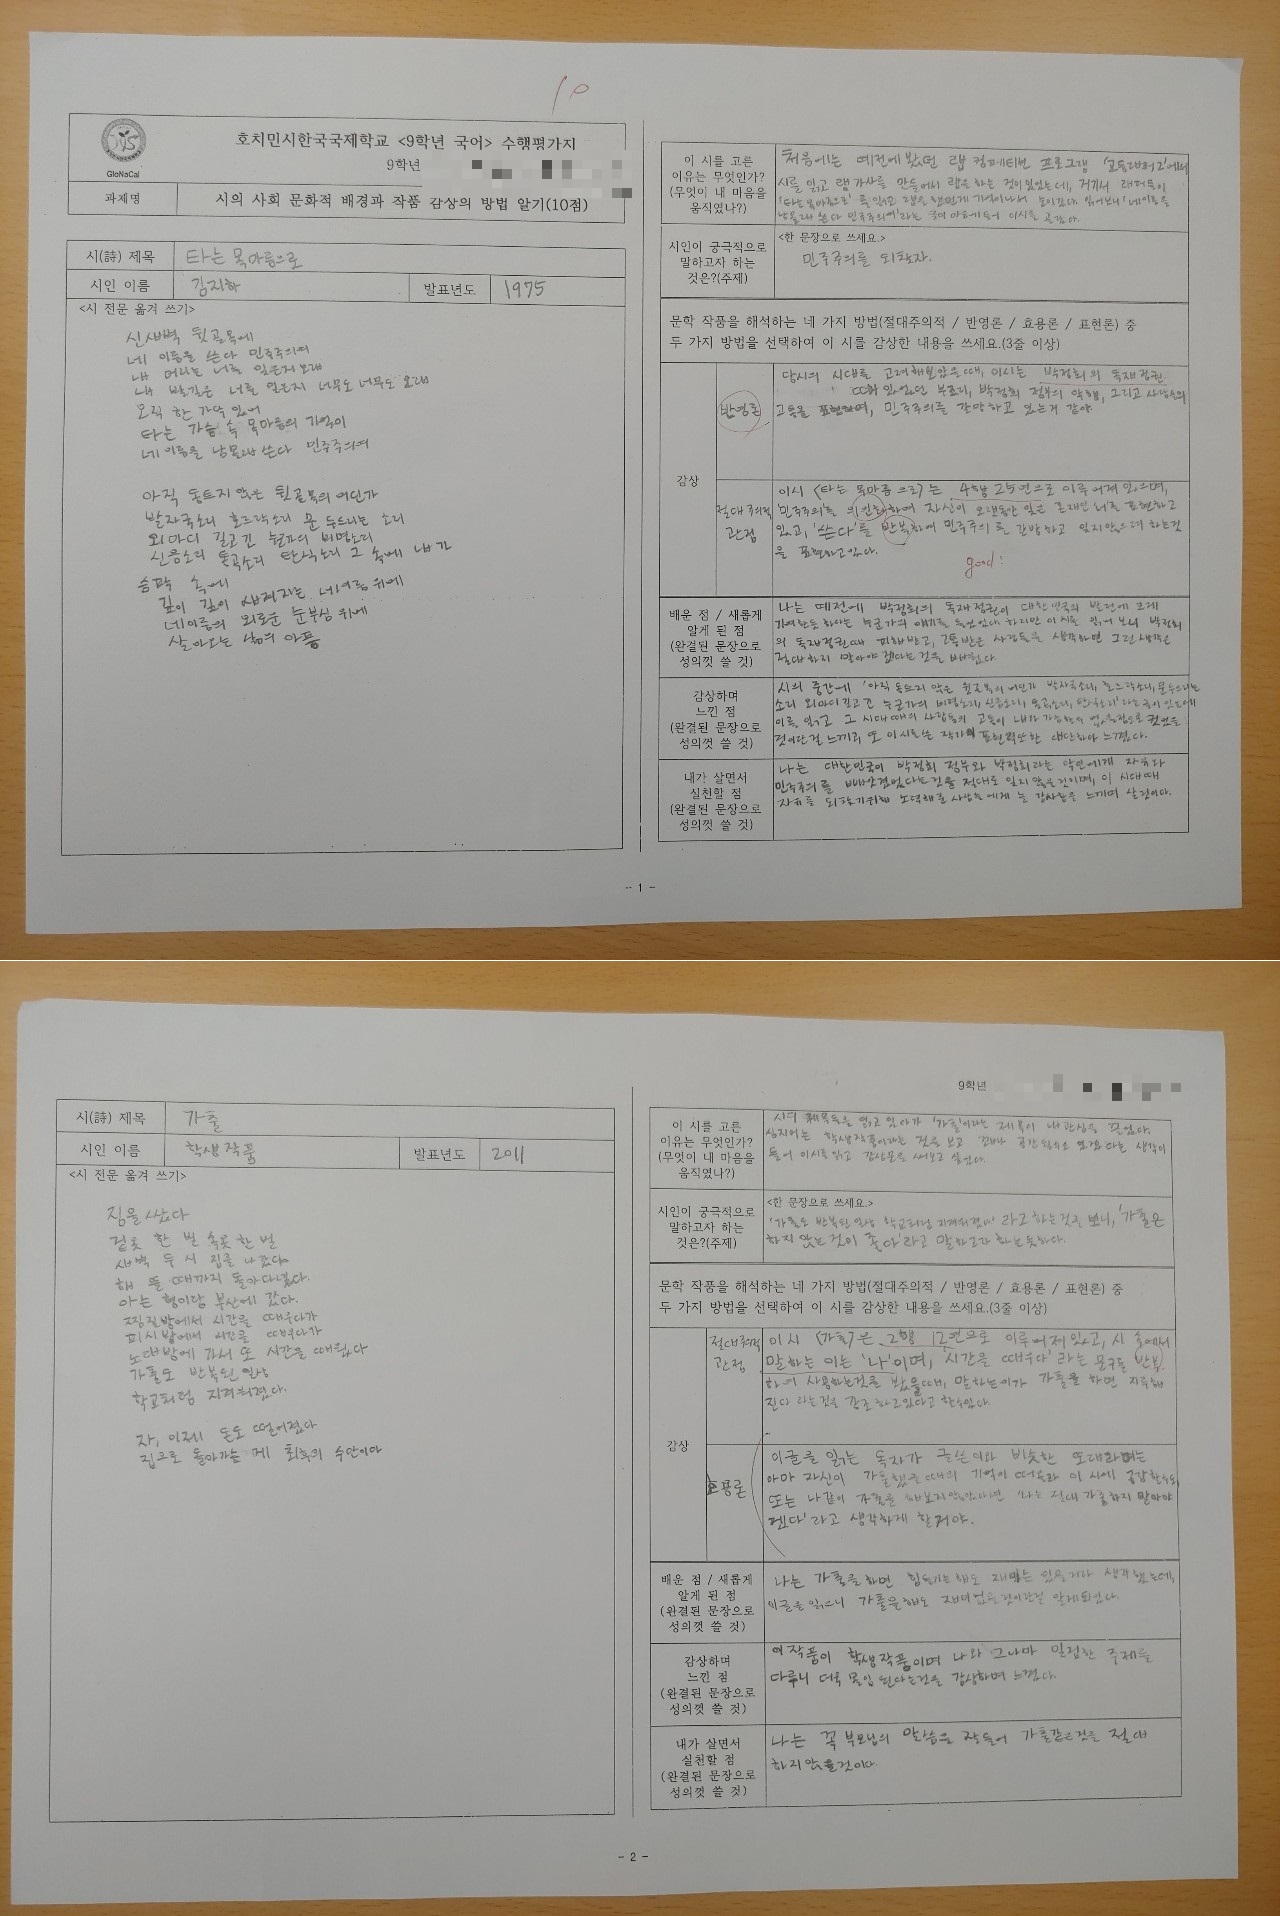 10
호치민시한국국제학교 <9학년 국어> 수행평가지
GloNaCal
9학년
과제명
시의 사회 문화적 배경과 작품 감상의 방법 알기(10점)
시(詩) 제목
타는 목마름으로
시인 이름
김지하
발표년도
1975
<시 전문 옮겨 쓰기>
신새벽 뒷골목에
네 이름을 쓴다 민주주의여
내 머리는 너를 잊은지 오래
내 발길은 너를 잊은지 너무도 너무도 오래
오직 한 가닥 있어
타는 가슴 속 목마름의 기억이
네 이름을 남몰래 쓴다 민주주의여
아직 동트지 않은 뒷골목의 어딘가
발자국소리 호르락소리 문 두드리는 소리
외마디 길고 긴 누군가의 비명소리
신음소리 통곡소리 탄식소리 그 속에 내 가
슴팍 속에
깊이 깊이 새겨지는 네이름 위에
네이름의 외로운 눈부심 위에
살아오는 삶의 아픔
이 시를 고른
이유는 무엇인가?
(무엇이 내 마음을
움직였나?)
처음에는 예전에 봤던 랩 컴페티션 프로그램 '고등래퍼2'에서
시를 읽고 랩가사를 만들어서 랩을 하는 것이 있었는데, 거기서 래퍼들이
'타는 목마름으로' 를 읽고 랩을 했던게 기억이나서 읽어보니 '네이름을
남몰래 쓴다 민주주의여'라는 이시를 골랐다.
시인이 궁극적으로
말하고자 하는
것은?(주제)
<한 문장으로 쓰세요.>
민주주의를 되찾자.
문학 작품을 해석하는 네 가지 방법(절대주의적 / 반영론 / 효용론 / 표현론) 중
두 가지 방법을 선택하여 이 시를 감상한 내용을 쓰세요.(3줄 이상)
감상
반영론
당시의 시대를 고려해보았을때, 이시는 박정희의 독재정권
때 있었던 부조리, 박정희 정부의 악행, 그리고 사람들의
고통을 표현하며, 민주주의를 갈망하고 있는거 같아.
절대주의적
관점
이시 <타는 목마름 으로>는 4행 25연으로 이루어져 있으며,
'민주주의'를 의인화하여 자신이 오랫동안 잊은 존재인 너를 표현하고
있고, '쓴다'를 반복하여 민주주의 를 갈망하고 잊지않으려 하는것
을 표현하고있다.
good!
배운 점 / 새롭게
알게 된 점
(완결된 문장으로
성의껏 쓸 것)
나는 예전에 박정희의 독재정권이 대한민국의 발전에 크게
기여했듯 하다는 누군가의 얘기를 들었었다. 하지만 이 시를 읽어 보니 박정희
의 독재정권때 피해받고, 고통받은 사람들을 생각하면 그런생각은
절대하지 말아야 겠다는 것을 배웠다.
감상하며
느낀 점
(완결된 문장으로
성의껏 쓸 것)
시의 중간에 '아직 동트지 않은 뒷골목의 어딘가 발자국소리, 호르락소리, 문두드리는
소리 외마디 길고 긴 누군가의 비명소리, 신음소리, 통곡소리, 탄식소리'라는 글이 있는데
이를 읽고 그 시대때의 사람들의 고통이 내가 가늠할수 없을정도로 컸었을
것이란걸 느끼고, 또 이시를쓴 작가의 표현력또한 대단하다 느꼈다.
내가 살면서
실천할 점
(완결된 문장으로
성의껏 쓸 것)
나는 대한민국이 박정희 정부와 박정희라는 악연에게 자유와
민주주의를 빼앗겼었다는것을 절대로 잊지 않을것이며, 이 시대때
자유를 되찾기위해 노력해준 사람들에게 늘 감사함을 느끼며 살것이다.
- 1 -
9학년
시(詩) 제목
가출
시인 이름
학생작품
발표년도
2011
<시 전문 옮겨 쓰기>
짐을 쌌다
겉옷 한 벌 속옷 한 벌
새벽 두 시 집을 나왔다.
해 뜰 때까지 돌아다녔다.
아는 형이랑 부산에 갔다.
찜질방에서 시간을 때우다가
피시방에서 시간을 때우다가
노래방에 가서 또 시간을 때웠다
가출도 반복된 일상
학교처럼 지겨워졌다.
자, 이제 돈도 떨어졌다
집으로 돌아가는 게 최후의 수단이다
이 시를 고른
이유는 무엇인가?
(무엇이 내 마음을
움직였나?)
시의 제목들을 읽고 있다가 '가출'이라는 제목이 내관심을 끌었다.
심지어는 학생작품이라는 것을 보고 꽤나 공감될수도 있겠다는 생각이
들어 이시를 읽고 감상문을 써보고 싶었다.
시인이 궁극적으로
말하고자 하는
것은?(주제)
<한 문장으로 쓰세요.>
'가출도 반복된 일상 학교처럼 지겨워졌다' 라고 하는것을 보니, '가출은
하지 않는것이 좋다'라고 말하고자 하는듯하다.
문학 작품을 해석하는 네 가지 방법(절대주의적 / 반영론 / 효용론 / 표현론) 중
두 가지 방법을 선택하여 이 시를 감상한 내용을 쓰세요.(3줄 이상)
감상
절대주의적
관점
이 시 <가출>은 2행 12연으로 이루어져있고, 시 속에서
말하는 이는 '나'이며, '시간을 때우다'라는 문구를 반복
하여 사용하는것을 봤을때, 말하는이가 가출을 하면 지루해
진다 라는것을 강조하고있다고 할수있다.
효용론
이글을 읽는 독자가 글쓴이와 비슷한 또래라면
아마 자신이 가출했을때의 기억이 떠올라 이 시에 공감할수도
또는 나같이 가출을 해보지않았다면 '나는 절대 가출하지 말아야
겠다'라고 생각하게 할거야.
배운 점 / 새롭게
알게 된 점
(완결된 문장으로
성의껏 쓸 것)
나는 가출을하면 힘들기는해도 재미는 있을거라 생각했는데,
이글을읽으니 가출을해도 재미없을것이란걸 알게되었다.
감상하며
느낀 점
(완결된 문장으로
성의껏 쓸 것)
이작품이 학생작품이며 나와 그나마 밀접한 주제를
다루니 더욱 몰입 된다는것을 감상하며 느꼈다.
내가 살면서
실천할 점
(완결된 문장으로
성의껏 쓸 것)
나는 꼭 부모님의 말씀을 잘들어 가출같은것을 절대
하지않을것이다.
- 2 -